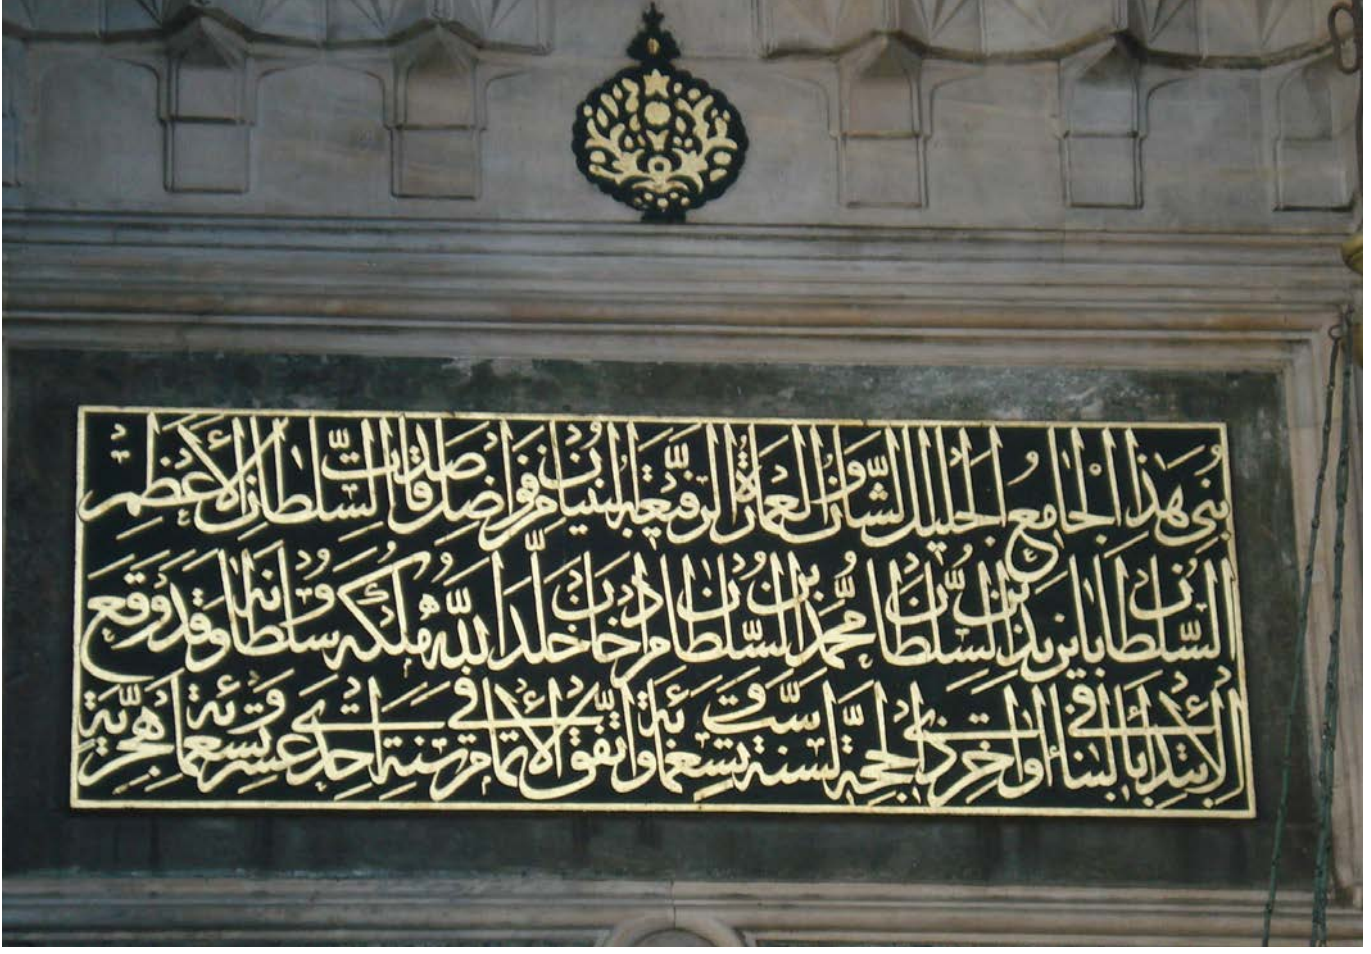 بني هذا الجامع الجليل الشان والعمارة الرفيعة البنيان من فواضل صدقات السلطان الأعظم
السلطان بايزيد بن السلطان محمد بن السلطان مراد خان خلد الله ملكه وسلطانه وقد وقع
الابتداء بالبناء في أواخر ذي الحجة لسنة ست وتسعمائة واتفق الاتمام في سنة احدى عشر وتسعمائة هجرية